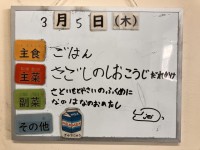 3月5日(木)
主食 ごはん
主菜 さごしのしおこうじ
副菜 さといもと のふくめに
なのはなのおひたし
その他